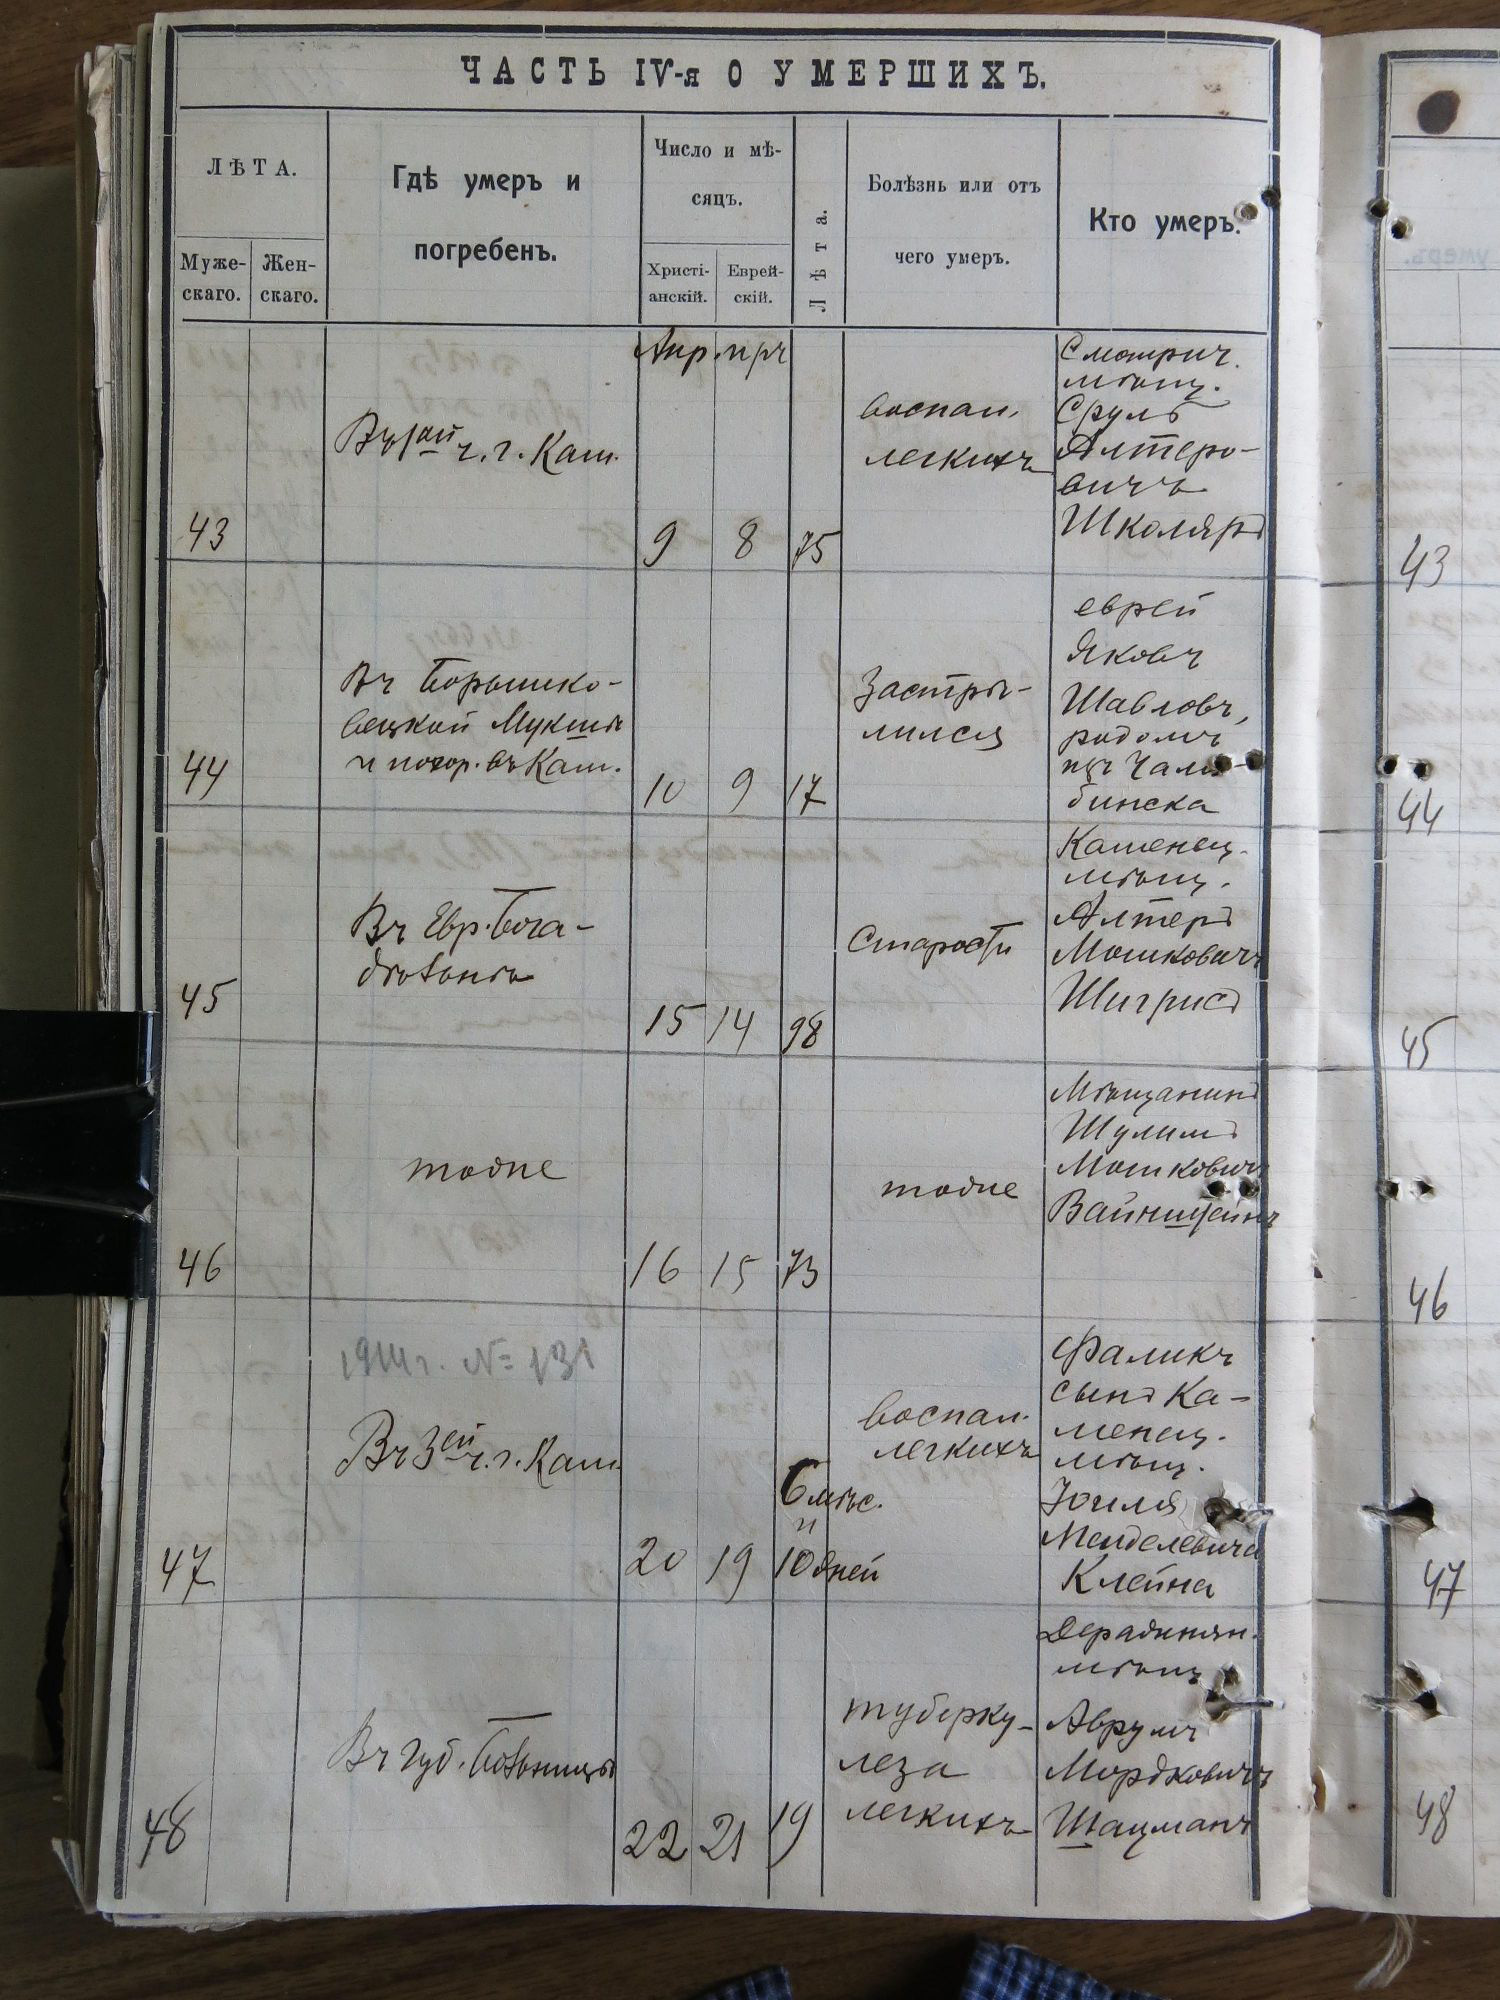 ЧАСТЬ IV-я О УМЕРШИХЪ.
ЛѢТА.
Муже-
скаго.
Жен-
скаго.
Гдѣ умеръ и
погребенъ.
Число и мѣ-
сяцъ.
Христі-
анскій.
Еврей-
скій.
Лѣта.
Болѣзнь или отъ
чего умеръ.
Кто умеръ.
Апр.
43
Въ 1ой ч. г. Кам.
9
8
75
воспал.
легкихъ
Смотрич.
мѣщ.
Сруль
Алтеро-
вичъ
Школяръ
43
44
Въ
вецкой Мукшѣ
и похор. въ Кам.
10
9
17
Застрѣ-
лился
еврей
Яковъ
Шавловъ,
родомъ
изъ Челя-
бинска
44
45
Въ Евр. Бога-
дѣльнѣ
15
14
98
Старости
Каменец.
мѣщ.
Алтеръ
Мошковичъ
45
46
тоже
16
15
73
тоже
Мѣщанинъ
Шулимъ
Мошковичъ
Вайнштейнъ
46
1914 г. № 131
47
Въ 3ей ч. г. Кам.
20
19
6 мѣс.
и
10 дней
воспал.
легкихъ
Фаликъ
сынъ Ка-
менец.
мѣщ.
Юиля
Менделевича
Клейна
47
48
Въ Губ. Больницѣ
22
21
19
туберку-
леза
легкихъ
Деражнян.
мѣщ.
Аврумъ
Мордковичъ
Шацманъ
48